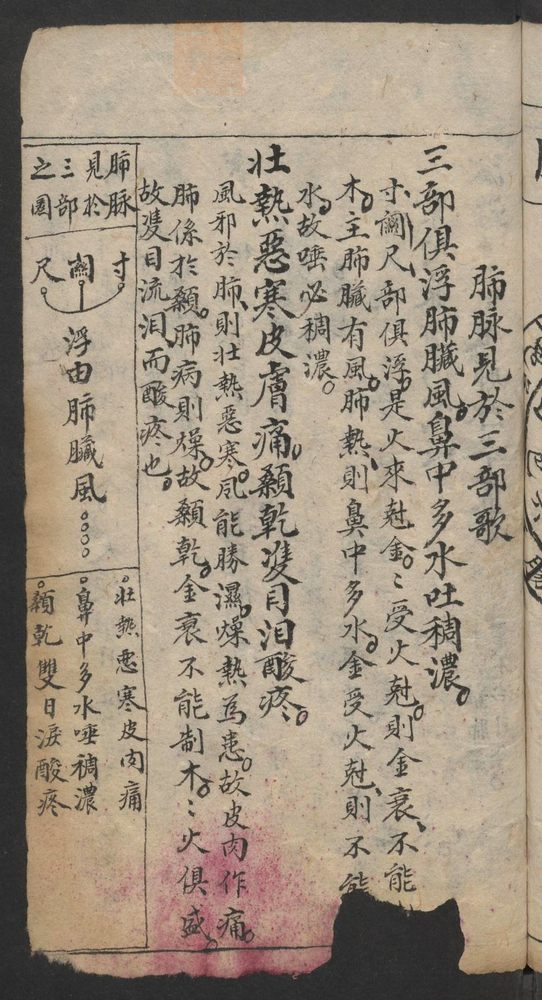 肺脉見於三部歌
三部俱浮肺臟風。鼻中多水吐稠濃。
寸關尺部俱浮。是火來尅金。〻受火尅。則金衰、不能
木。主肺臟有風。肺熱、則鼻中多水。金受火尅、則不能
水。故唾必稠濃。
壯熱惡寒皮膚痛。顙乾雙目泪酸疼。
風邪於肺、則壯熱惡寒。風能勝濕。燥熱為患。故皮肉作痛。
肺係於顙。肺病則燥。故顙乾。金衰不能制木。〻火俱盛。
故雙目流泪而酸疼也。
肺脉
見於
三部
之圖
寸
關
尺
浮由肺臟風。。。。
。壯熱惡寒皮肉痛
。鼻中多水唾稠濃
。顙乾雙目淚酸疼